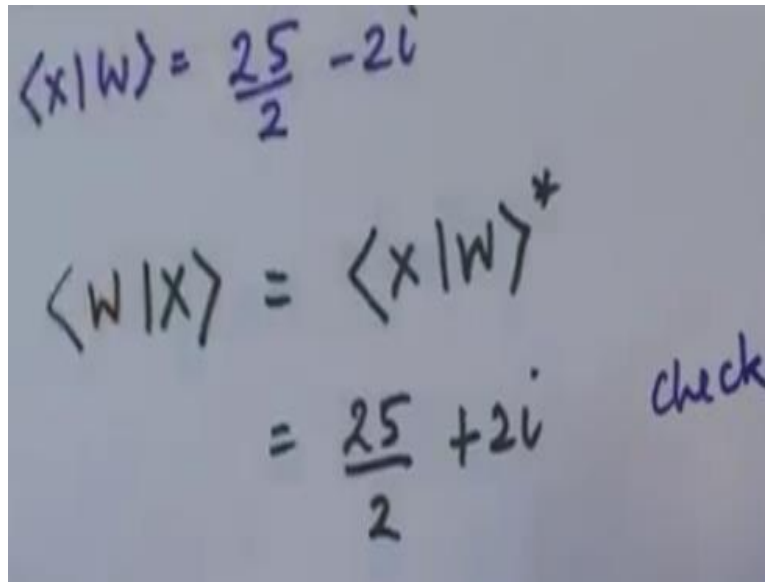 ⟨x|W⟩ = 25/2 - 2i
⟨W|X⟩ = ⟨X|W⟩*
= 25/2 + 2i check